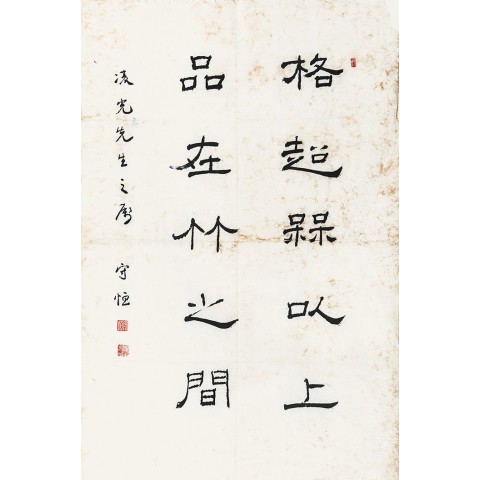 格超槑以上
品在竹之間
凌光先生之屬 守恒